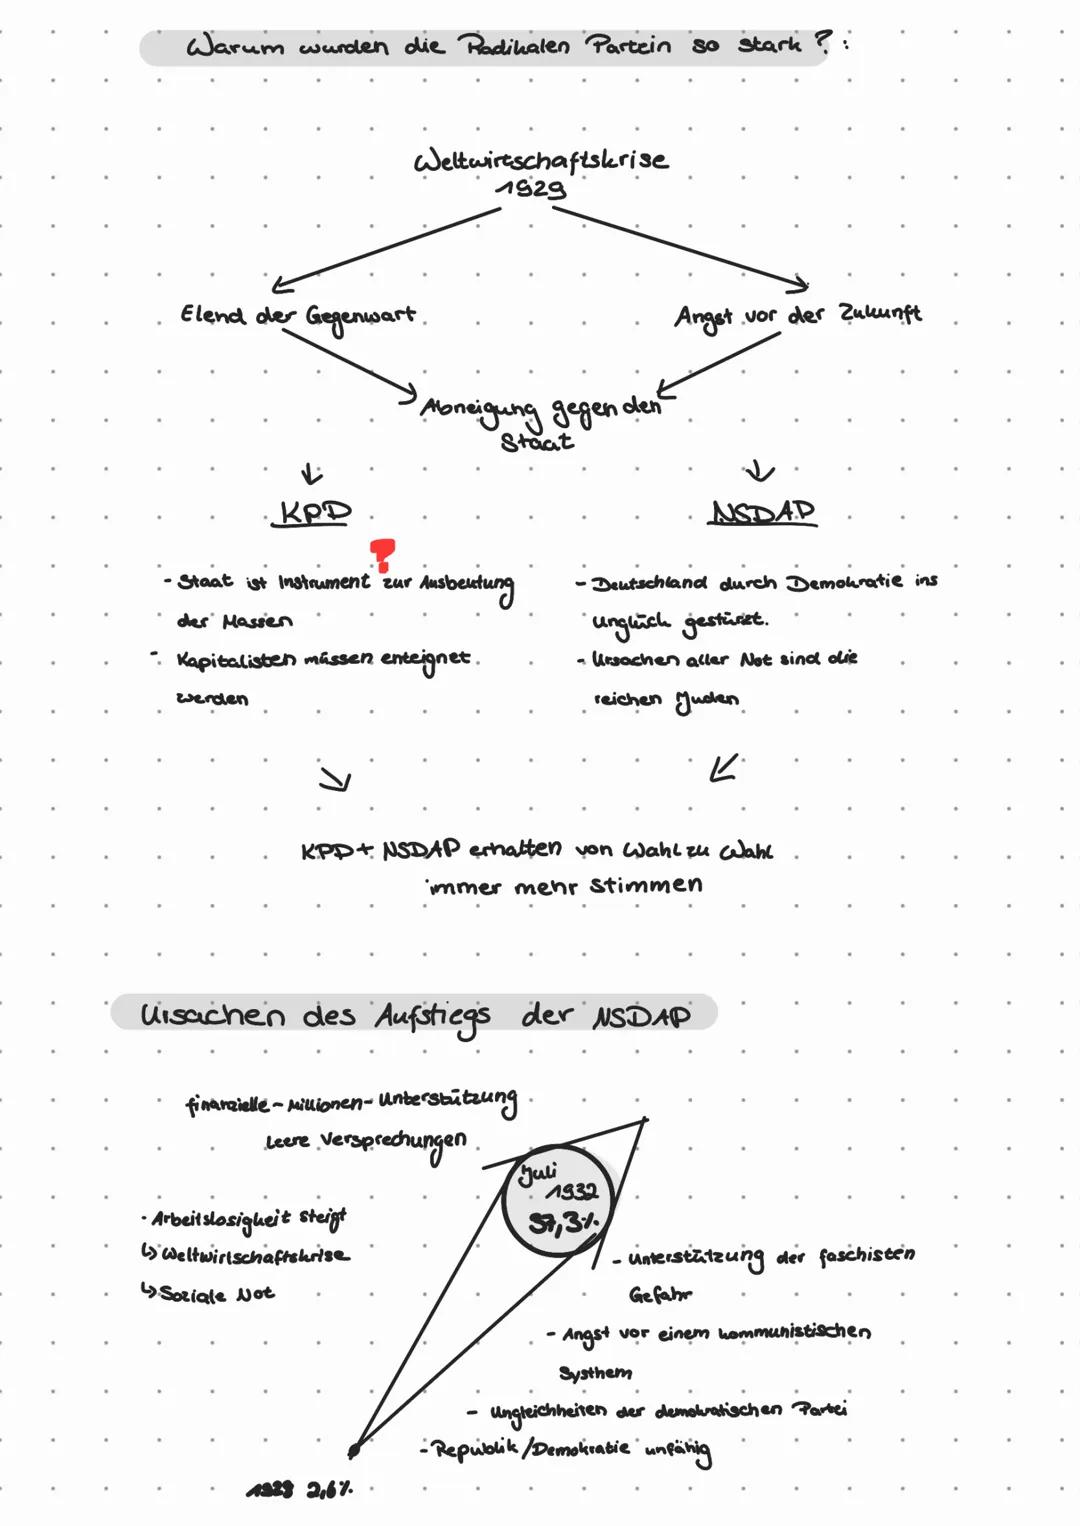 Warum wurden die Radikalen Partein so stark ? :
Weltwirtschaftskrise
1929
Elend der Gegenwart
Angst vor der Zukunft
Abneigung gegen den
Staat
KPD
NSDAP
?
- Staat ist Instrument zur Ausbeutung
der Massen
- Kapitalisten müssen enteignet
werden
- Deutschland durch Demokratie ins
Unglück gestürzt.
- Ursachen aller Not sind die
reichen Juden
KPD + NSDAP erhalten von Wahl zu Wahl
immer mehr stimmen
Ursachen des Aufstiegs der NSDAP
finanzielle - Millionen - Unterstützung
Leere Versprechungen
Juli
1932
37,3%
- Arbeitslosigkeit steigt
↳ Weltwirtschaftskrise
↳ Soziale Not
- Unterstützung der faschisten
Gefahr
- Angst vor einem kommunistischen
Systhem
- Ungleichheiten der demokratischen Partei
- Republik/Demokratie unfähig
1928 2,6%